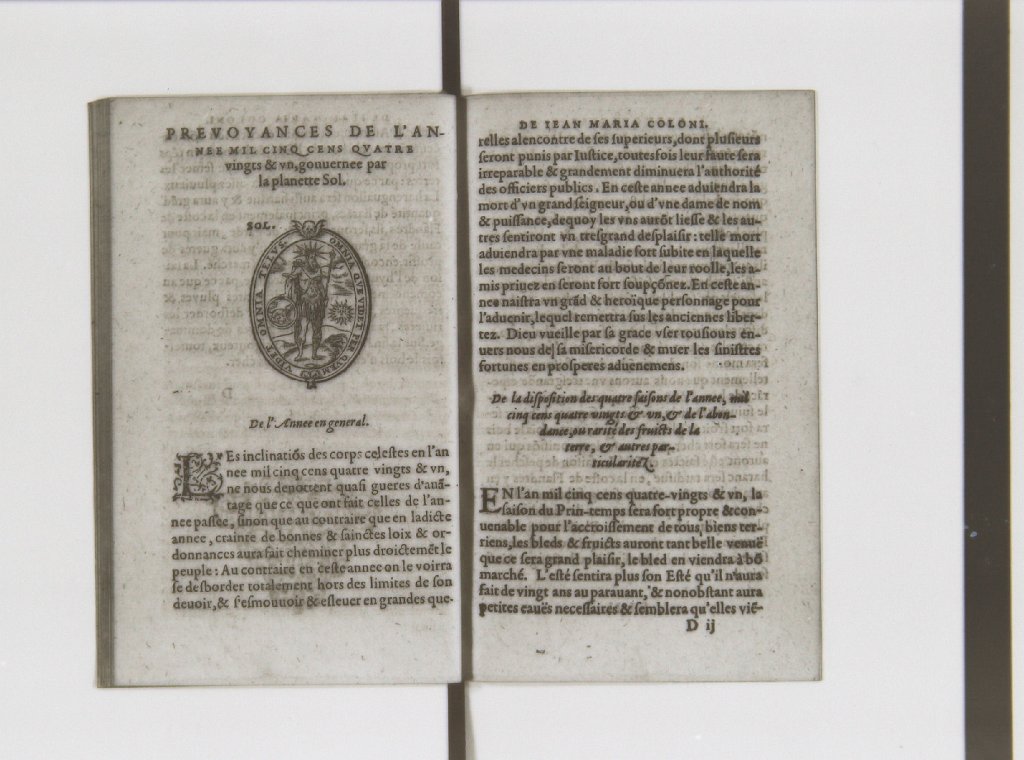 PREVOYANCES DE L'AN-
NEE MIL CINQ CENS QVATRE
vingts & vn, gouuernee par
la planette Sol.
SOL.
De l'Annee en general.
LEs inclinatiōs des corps celestes en l'an
nee mil cinq cens quatre vingts & vn,
ne nous denottent quasi gueres d'auā-
tage que ce que ont fait celles de l'an-
nee passee, sinon que au contraire que en ladicte
annee, crainte de bonnes & sainctes loix & or-
donnances aura fait cheminer plus droictemēt le
peuple: Au contraire en ceste annee on le voirra
se desborder totalement hors des limites de son
deuoir, & s'esmouuoir & esleuer en grandes que-
DE IEAN MARIA COLONI.
relles alencontre de ses superieurs, dont plusieurs
seront punis par Iustice, toutesfois leur faute sera
irreparable & grandement diminuera l'authorité
des officiers publics. En ceste annee aduiendra la
mort d'vn grand seigneur, ou d'vne dame de nom
& puissance, dequoy les vns aurōt liesse & les au-
tres sentiront vn tresgrand desplaisir: telle mort
aduiendra par vne maladie fort subite en laquelle
les medecins seront au bout de leur roolle, les a-
mis priuez en seront fort soupçōnez. En ceste an-
nee naistra vn grād & heroïque personnage pour
l'aduenir, lequel remettra sus les anciennes liber-
tez. Dieu vueille par sa grace vser tousiours en-
uers nous de sa misericorde & muer les sinistres
fortunes en prosperes aduenemens.
De la disposition des quatre saisons de l'annee, mil
cinq cens quatre vingts & vn, & de l'abon-
dance, ou rarité des fruicts de la
terre, & autres par-
ticularitez.
EN l'an mil cinq cens quatre-vingts & vn, la
saison du Prin-temps sera fort propre & con-
uenable pour l'accroissement de tous biens ter-
riens, les bleds & fruicts auront tant belle venuë
que ce sera grand plaisir, le bled en viendra à bō
marché. L'esté sentira plus son Esté qu'il n'aura
fait de vingt ans au parauant, & nonobstant aura
petites eauës necessaires & semblera qu'elles viē-
D ij